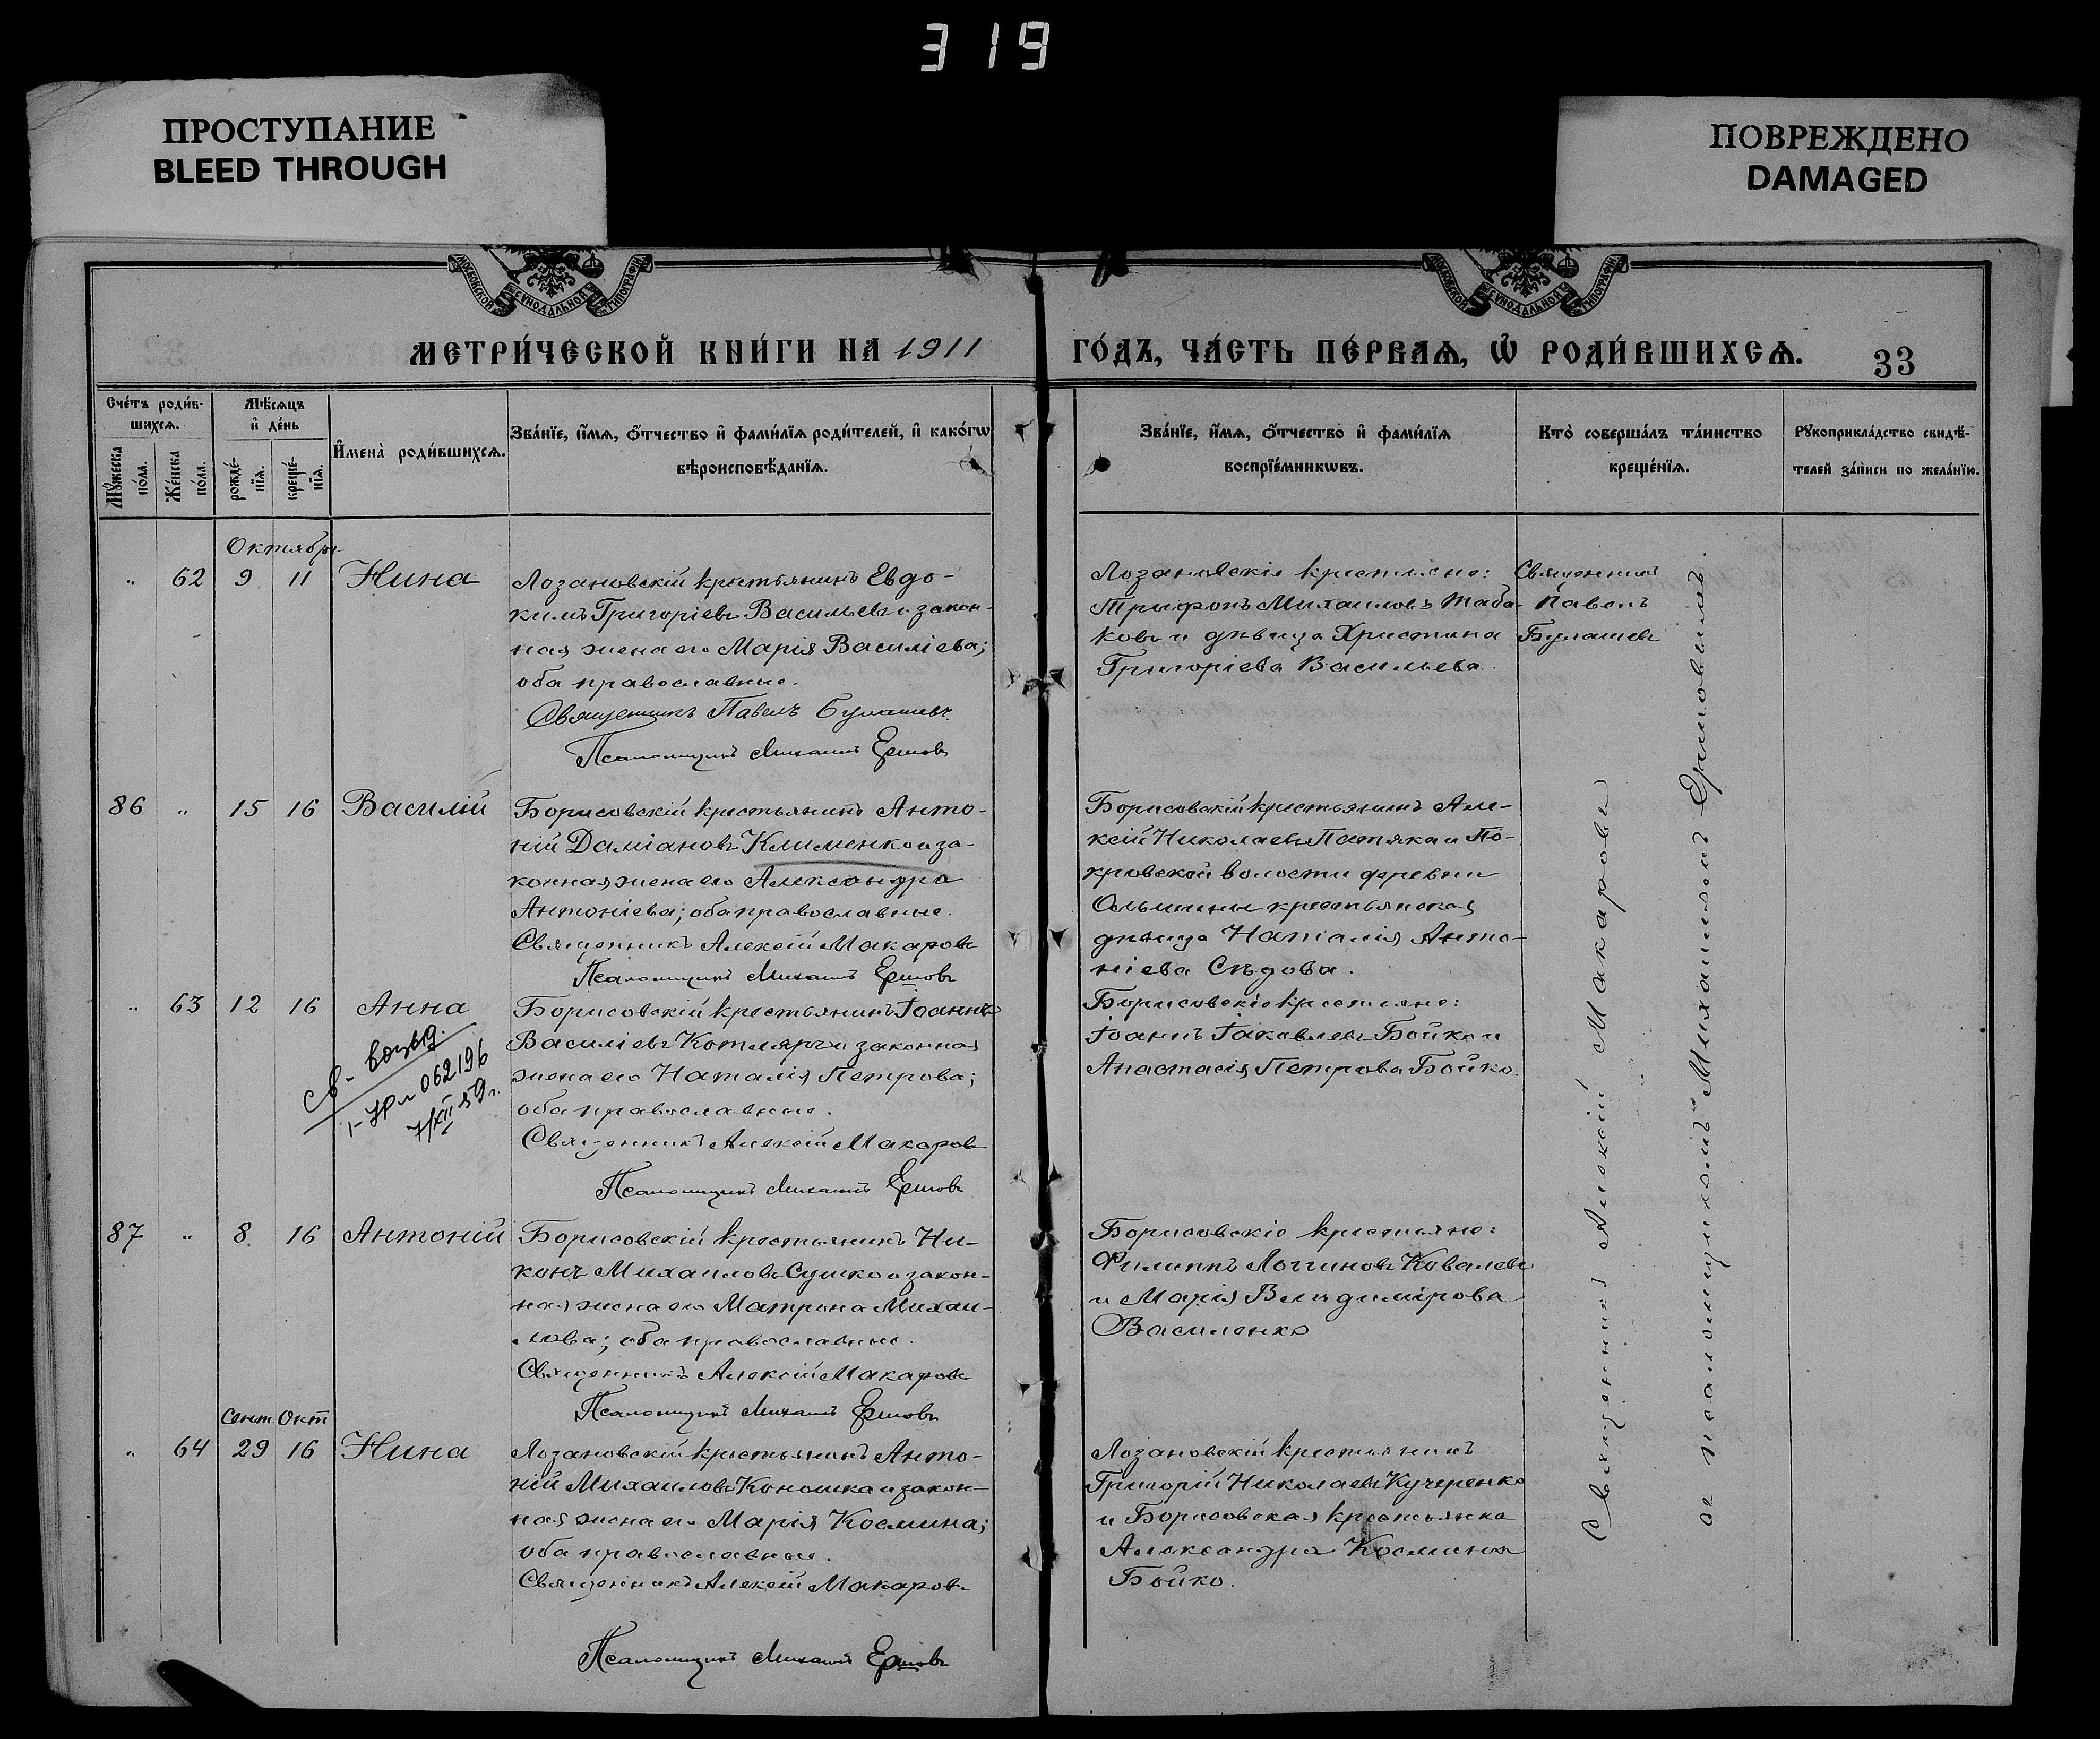 319
ПРОСТУПАНИЕ
BLEED THROUGH
ПОВРЕЖДЕНО
DAMAGED
МОСКОВСКОЙ СѴНОДАЛЬНОЙ ТИПОГРАФІИ
МОСКОВСКОЙ СѴНОДАЛЬНОЙ ТИПОГРАФІИ
МЕТРИ́ЧЕСКОЙ КНИ́ГИ НА 1911
ГО́ДЪ, ЧА́СТЬ ПЕ́РВАѦ, Ѡ҆ РОДИ́ВШИХСѦ.
33
Сче́тъ роди́в-
шихсѧ.
Мꙋ́жеска по́ла.
Же́нска по́ла.
Мѣ́сѧцъ
и҆ де́нь
рожде́-
нїѧ.
креще́-
нїѧ.
И҆мена̀ роди́вшихсѧ.
Зва́нїе, и҆́мѧ, ѻ҆́тчество и҆ фами́лїѧ роди́телей, и҆ како́гѡ
вѣроисповѣ́данїѧ.
Зва́нїе, и҆́мѧ, ѻ҆́тчество и҆ фами́лїѧ
воспрїе́мникѡвъ.
Кто̀ соверша́лъ та́инство
креще́нїѧ.
Рꙋкоприкла́дство свидѣ́-
телей за́писи по жела́нїю.
Октябрь
" 62 9 11 Нина
Лозановскій крестьянинъ Евдо-
кимъ Григоріевъ Васильевъ и закон-
ная жена его Марія Василіева;
оба православные.
Священникъ Павелъ Булашевъ
Псаломщикъ Михаилъ Ершовъ
Лозановскіе крестьяне:
Трифонъ Михаиловъ Таба-
ковъ и дѣвица Христина
Григоріева Васильева.
Священникъ
Павелъ
Булашевъ
86 " 15 16 Василій
Борисовскій крестьянинъ Анто-
ній Даміановъ Клименко и за-
конная жена его Александра
Антоніева; оба православные.
Священникъ Алексій Макаровъ
Псаломщикъ Михаилъ Ершовъ
Борисовскій крестьянинъ Але-
ксій Николаевъ Патяка и По-
кровской волости деревни
Ольшины крестьянская
дѣвица Наталія Анто-
ніева Сѣдова.
" 63 12 16 Анна
Борисовскій крестьянинъ Іоаннъ
Василіевъ Котляръ и законная
жена его Наталія Петрова;
оба православные.
Священникъ Алексій Макаровъ
Псаломщикъ Михаилъ Ершовъ
Борисовскіе крестьяне:
Іоаннъ Іаковлевъ Бойко и
Анастасія Петрова Бойко.
062196
7/XII 59 г.
87 " 8 16 Антоній
Борисовскій крестьянинъ Ни-
конъ Михаиловъ Сушко и закон-
ная жена его Матрона Михаи-
лова; оба православные.
Священникъ Алексій Макаровъ
Псаломщикъ Михаилъ Ершовъ
Борисовскіе крестьяне:
Филиппъ Логгиновъ Ковалевъ
и Марія Владимірова
Василенко
Сент. Окт
" 64 29 16 Нина
Лозановскій крестьянинъ Анто-
ній Михаиловъ Коношка и закон-
ная жена его Марія Космина;
оба православные.
Священникъ Алексій Макаровъ
Псаломщикъ Михаилъ Ершовъ
Лозановскій крестьянинъ
Григорій Николаевъ Кучеренко
и Борисовская крестьянка
Александра Космина
Бойко.
Священникъ Алексій Макаровъ
съ псаломщикомъ Михаиломъ Ершовымъ.